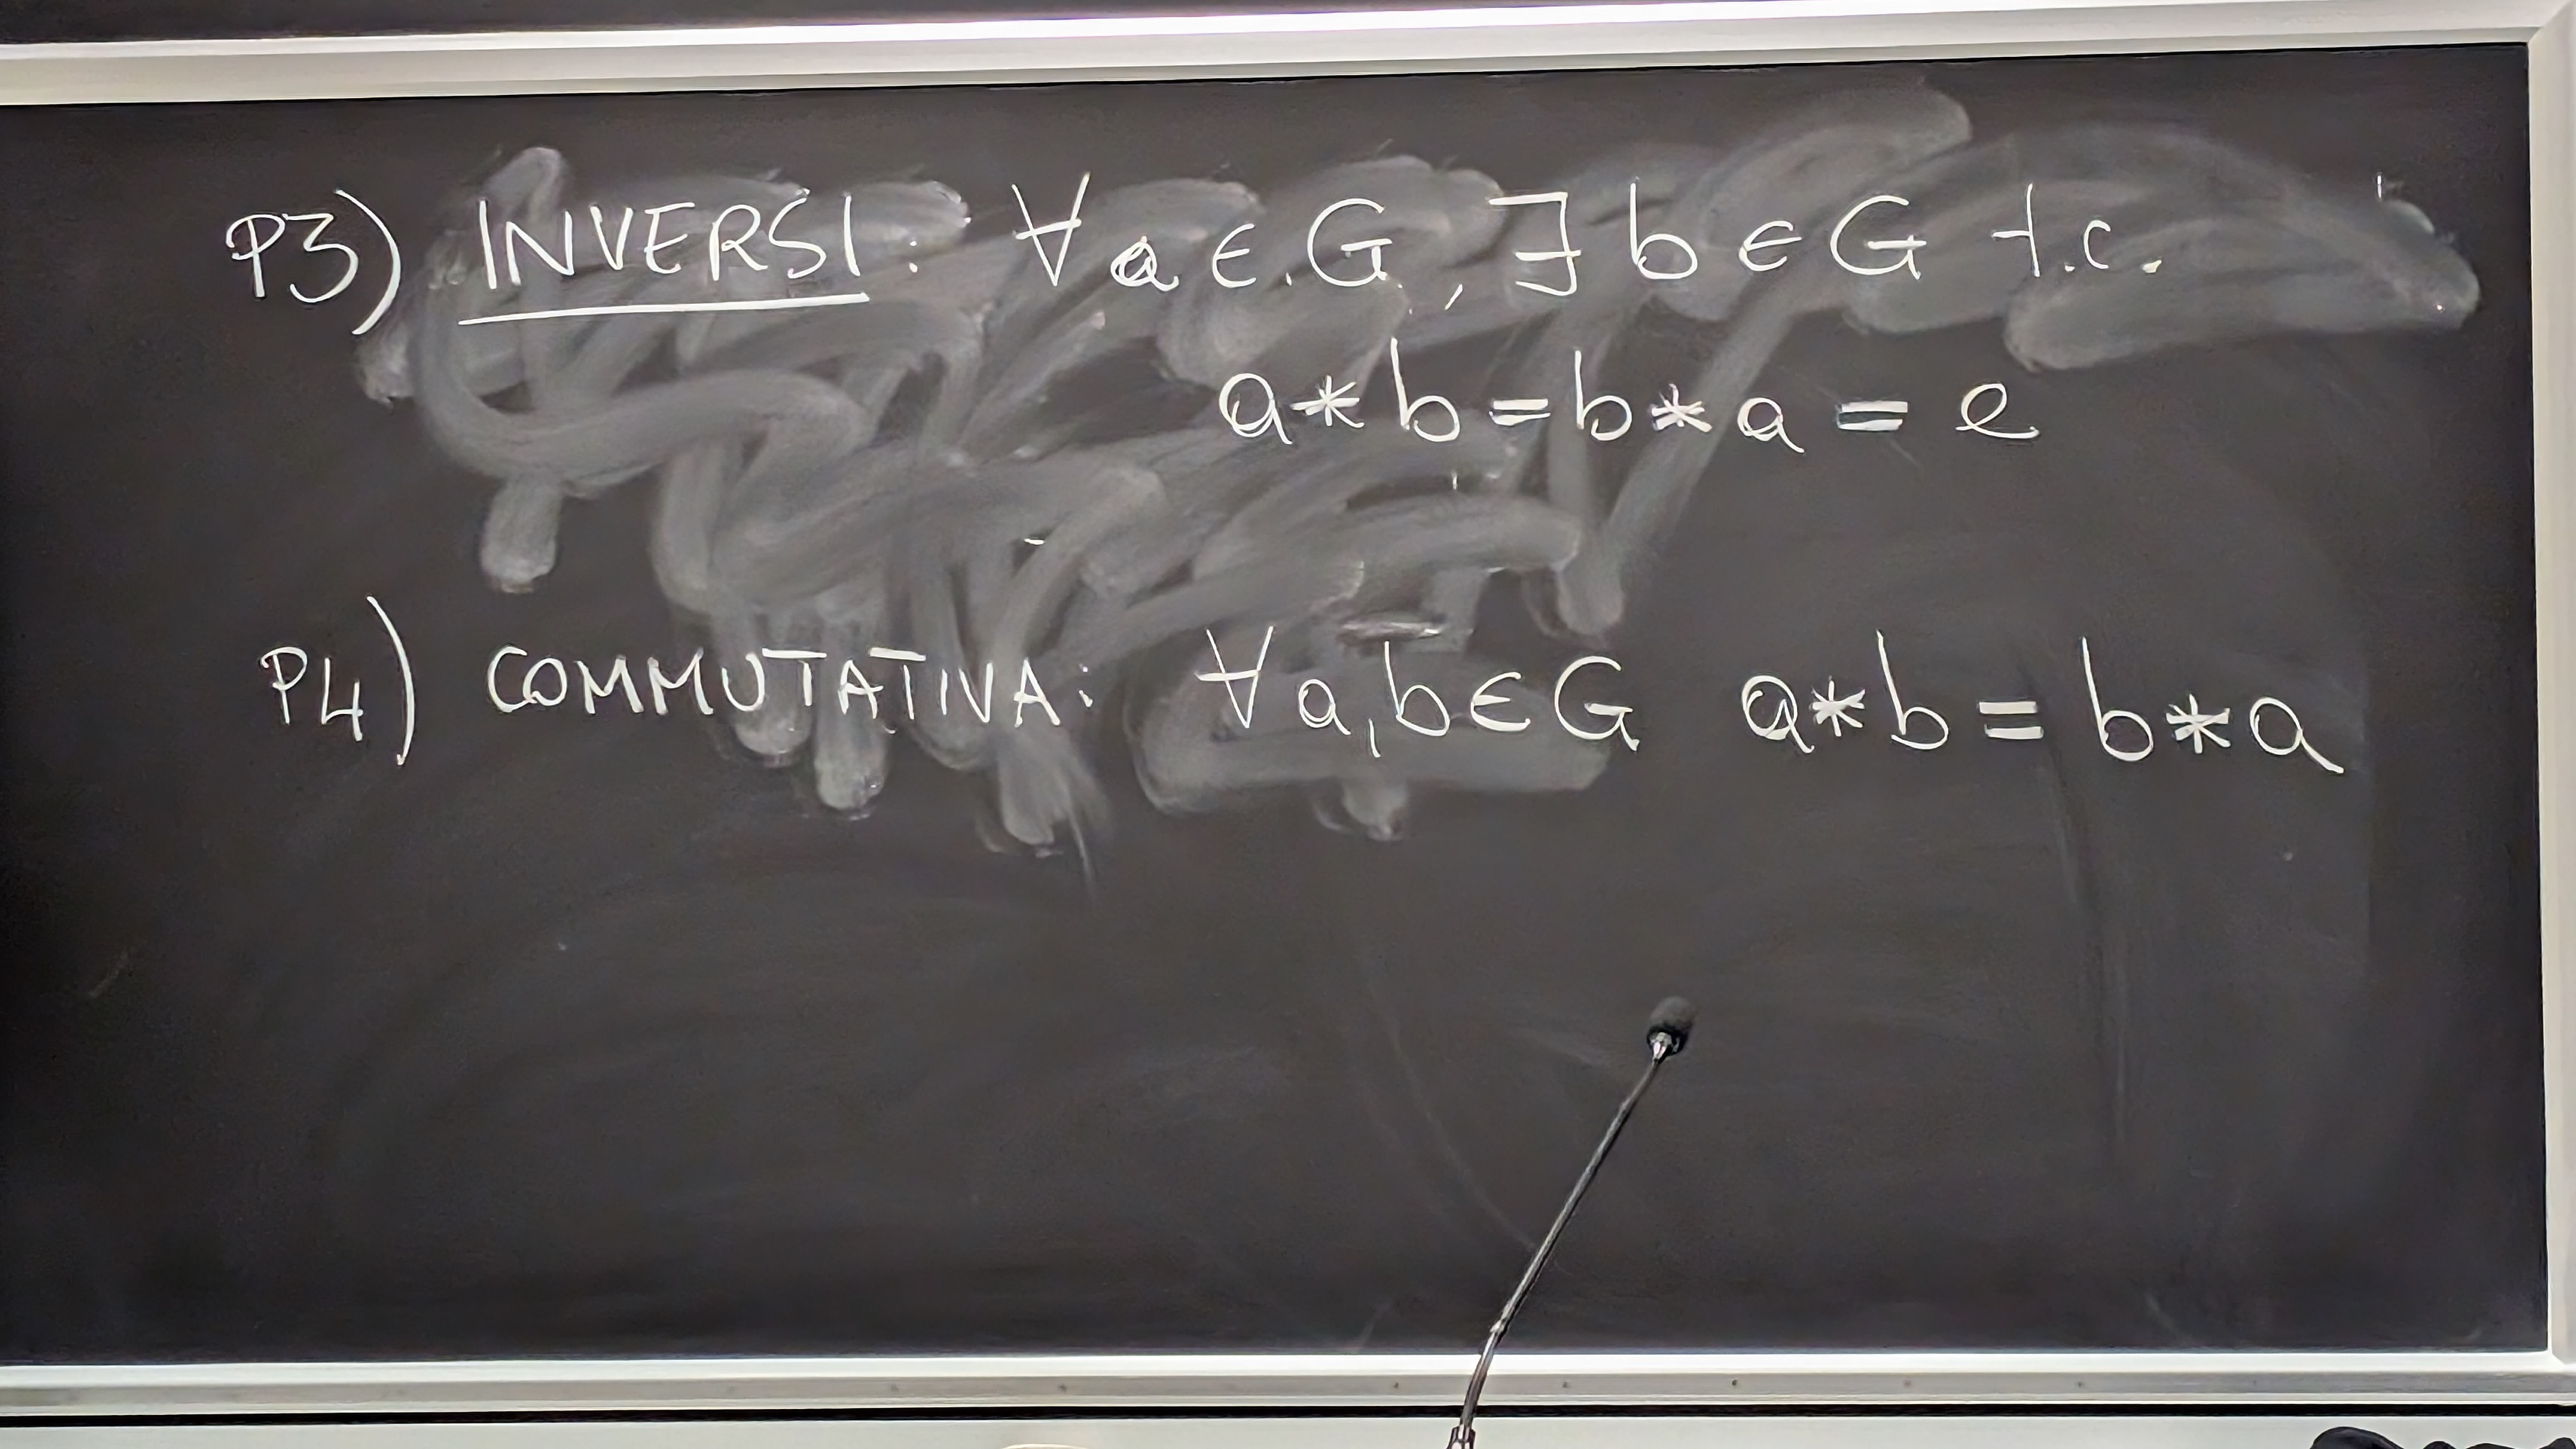 P3) INVERSI: ∀ a ∈ G, ∃ b ∈ G t.c.
a * b = b * a = e
P4) COMMUTATIVA: ∀ a, b ∈ G a * b = b * a